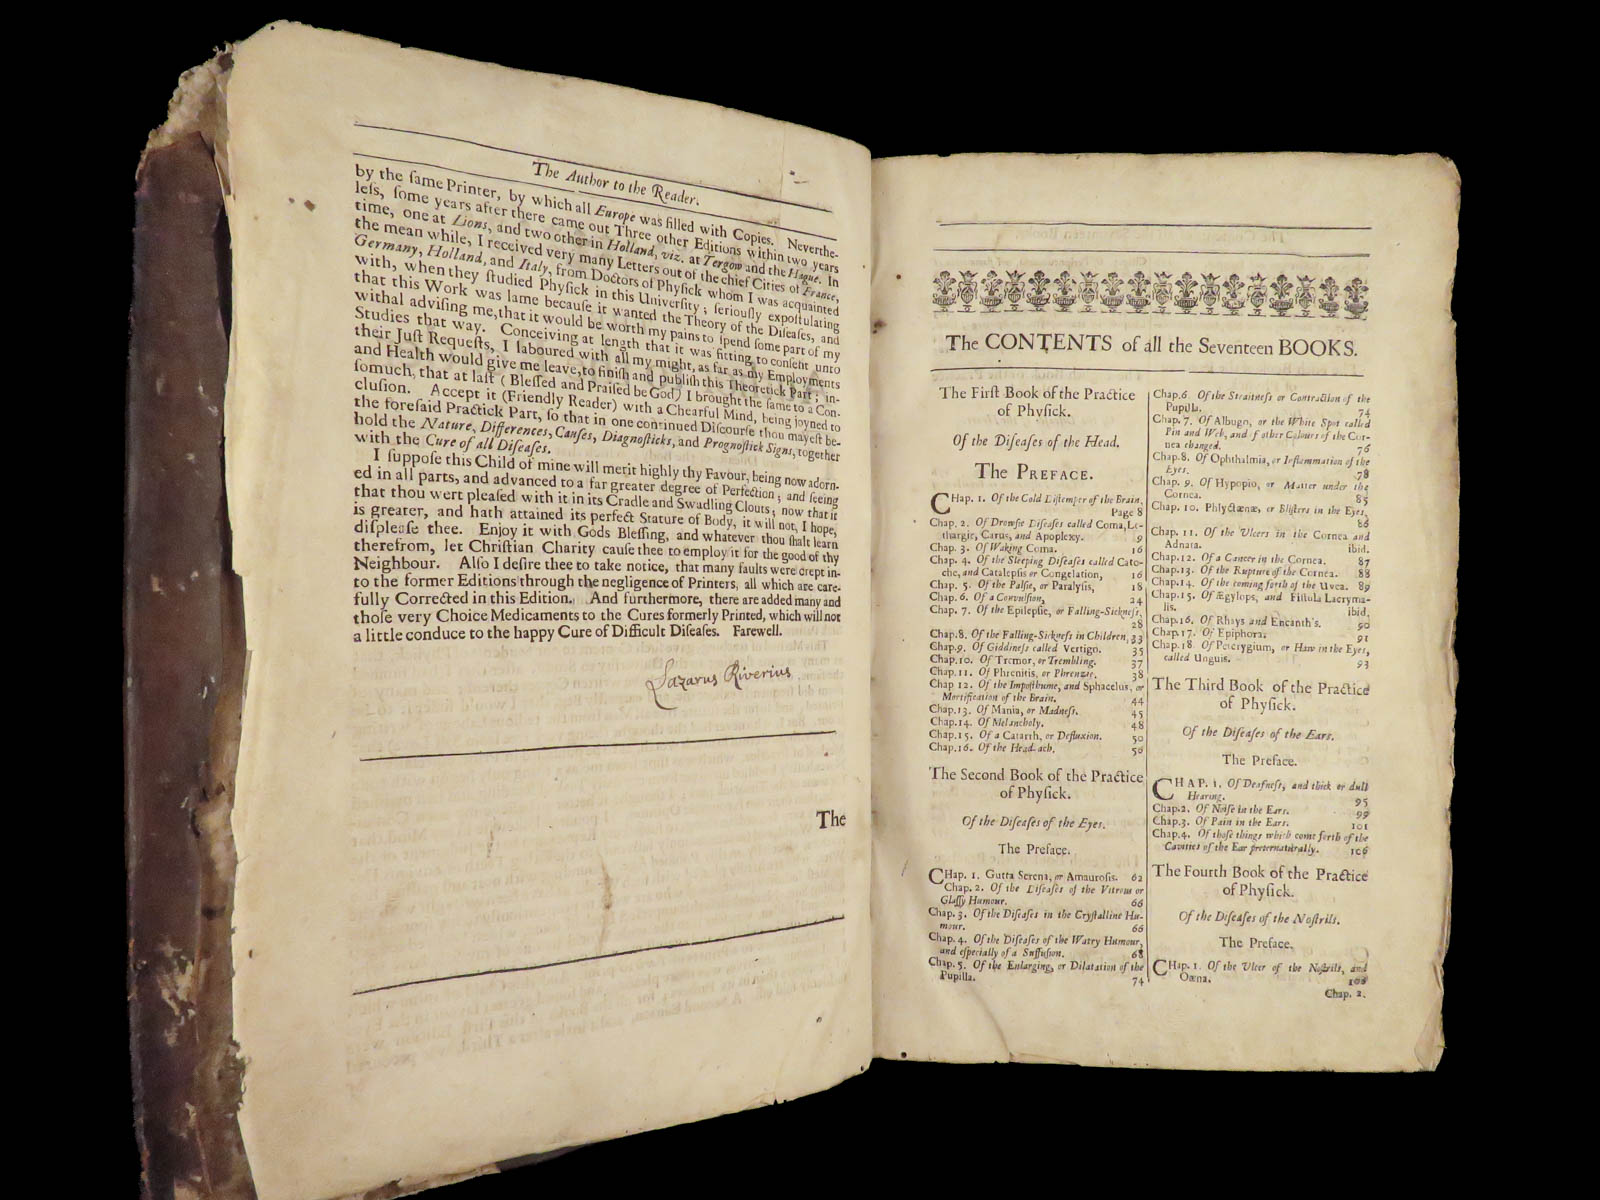 The Author to the Reader.
by the ſame Printer, by which all Europe was filled with Copies. Neverthe-
leſs, ſome years after there came out Three other Editions within two years
time, one at Lions, and two other in Holland, viz. at Tergow and the Hague. In
the mean while, I received very many Letters out of the chief Cities of France,
Germany, Holland, and Italy, from Doctors of Phyſick whom I was acquainted
with, when they ſtudied Phyſick in this Univerſity; ſeriouſly expoſtulating
that this Work was lame becauſe it wanted the Theory of the Diſeaſes, and
withal adviſing me, that it would be worth my pains to ſpend ſome part of my
Studies that way. Conceiving at length that it was fitting to conſent unto
their Juſt Requeſts, I laboured with all my might, as far as my Employments
and Health would give me leave, to finiſh and publiſh this Theoretick Part; in-
ſomuch, that at laſt (Bleſſed and Praiſed be God) I brought the ſame to a Con-
cluſion. Accept it (Friendly Reader) with a Chearful Mind, being joyned to
the foreſaid Practick Part, ſo that in one continued Diſcourſe thou mayeſt be-
hold the Nature, Differences, Cauſes, Diagnoſticks, and Prognoſtick Signs, together
with the Cure of all Diſeaſes.
I ſuppoſe this Child of mine will merit highly thy Favour, being now adorn-
ed in all parts, and advanced to a far greater degree of Perfection; and ſeeing
that thou wert pleaſed with it in its Cradle and Swadling Clouts; now that it
is greater, and hath attained its perfect Stature of Body, it will not, I hope,
diſpleaſe thee. Enjoy it with Gods Bleſſing, and whatever thou ſhalt learn
therefrom, let Chriſtian Charity cauſe thee to employ it for the good of thy
Neighbour. Alſo I deſire thee to take notice, that many faults were crept in-
to the former Editions through the negligence of Printers, all which are care-
fully Corrected in this Edition. And furthermore, there are added many and
thoſe very Choice Medicaments to the Cures formerly Printed, which will not
a little conduce to the happy Cure of Difficult Diſeaſes. Farewell.
Lazarus Riverius
The
The CONTENTS of all the Seventeen BOOKS.
The Firſt Book of the Practice
of Phyſick.
Of the Diſeaſes of the Head.
The PREFACE.
CHap. 1. Of the Cold Diſtemper of the Brain,
Page 8
Chap. 2. Of Drowſie Diſeaſes called Coma, Le-
thargie, Carus, and Apoplexy. 9
Chap. 3. Of Waking Coma. 16
Chap. 4. Of the Sleeping Diſeaſes called Cato-
che, and Catalepſis or Congelation, 16
Chap. 5. Of the Palſie, or Paralyſis, 18
Chap. 6. Of a Convulſion, 24
Chap. 7. Of the Epilepſie, or Falling-Sickneſs,
28
Chap. 8. Of the Falling-Sickneſs in Children, 33
Chap. 9. Of Giddineſs called Vertigo. 35
Chap. 10. Of Tremor, or Trembling. 37
Chap. 11. Of Phrenitis, or Phrenzie. 38
Chap 12. Of the Impoſthume, and Sphacelus, or
Mortification of the Brain. 44
Chap. 13. Of Mania, or Madneſs. 45
Chap. 14. Of Melancholy. 48
Chap. 15. Of a Catarrh, or Defluxion. 50
Chap. 16. Of the Head-ach. 56
The Second Book of the Practice
of Phyſick.
Of the Diſeaſes of the Eyes.
The Preface.
CHap. 1. Gutta Serena, or Amauroſis. 62
Chap. 2. Of the Diſeaſes of the Vitrous or
Glaſſy Humour. 66
Chap. 3. Of the Diſeaſes in the Cryſtalline Hu-
mour. 66
Chap. 4. Of the Diſeaſes of the Watry Humour,
and eſpecially of a Suffuſion. 68
Chap. 5. Of the Enlarging, or Dilatation of the
Pupilla. 74
Chap. 6 Of the Straitneſs or Contraction of the
Pupilla. 74
Chap. 7. Of Albugo, or the White Spot called
Pin and Web, and of other Colours of the Cor-
nea changed. 76
Chap. 8. Of Ophthalmia, or Inflammation of the
Eyes. 78
Chap. 9. Of Hypopio, or Matter under the
Cornea. 85
Chap. 10. Phlyctænæ, or Bliſters in the Eyes,
86
Chap. 11. Of the Ulcers in the Cornea and
Adnata. ibid.
Chap. 12. Of a Cancer in the Cornea. 87
Chap. 13. Of the Rupture of the Cornea. 88
Chap. 14. Of the coming forth of the Uvea. 89
Chap. 15. Of Ægylops, and Fiſtula Lacryma-
lis. ibid.
Chap. 16. Of Rhays and Encanth's. 90
Chap. 17. Of Epiphora. 91
Chap. 18. Of Peterygium, or Haw in the Eyes,
called Unguis. 93
The Third Book of the Practice
of Phyſick.
Of the Diſeaſes of the Ears.
The Preface.
CHAP. 1. Of Deafneſs, and thick or dull
Hearing. 95
Chap. 2. Of Noiſe in the Ears. 99
Chap. 3. Of Pain in the Ears. 101
Chap. 4. Of thoſe things which come forth of the
Cavities of the Ear preternaturally. 106
The Fourth Book of the Practice
of Phyſick.
Of the Diſeaſes of the Noſtrils.
The Preface.
CHap. 1. Of the Ulcer of the Noſtrils, and
Ozæna.
Chap. 2.